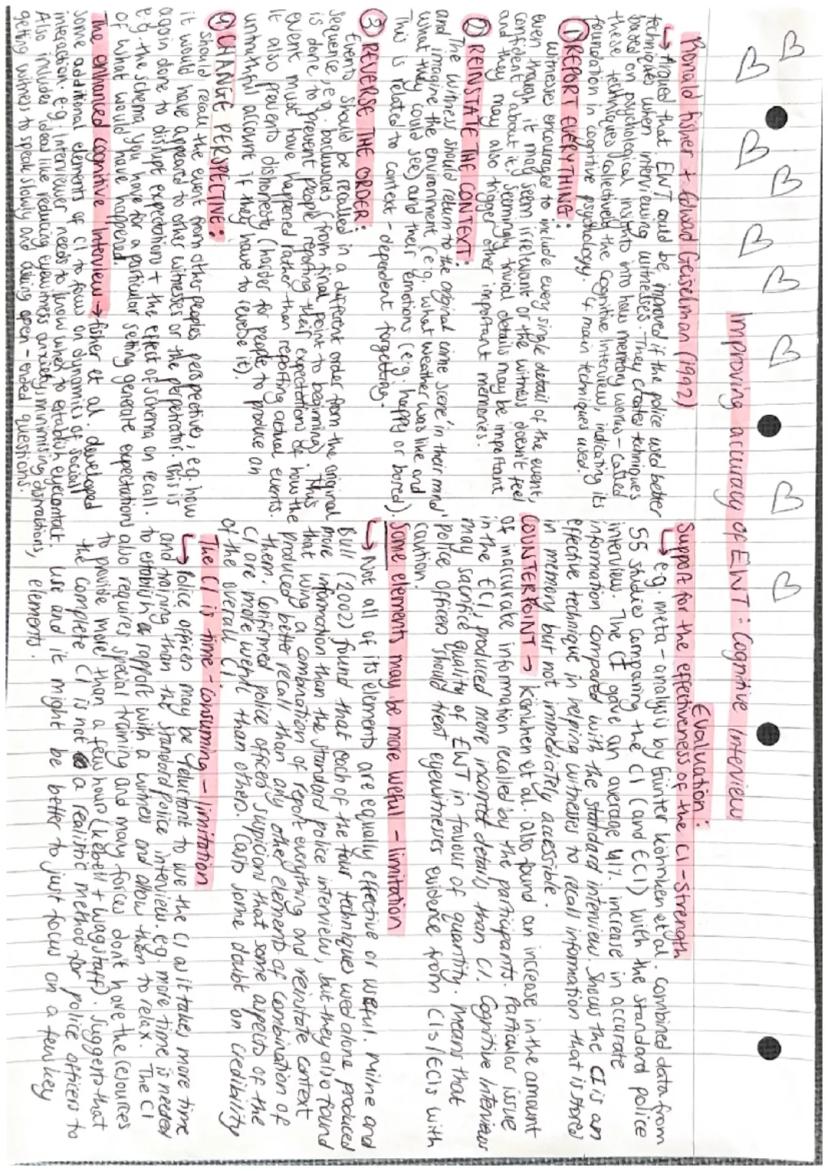 Improving accuracy of EWT: Cognitive Interview
Ronald Fisher + Edward Geiselman (1992)
↳ Argued that EWT could be improved if the police used better
techniques when interviewing witnesses. They created techniques
based on psychological insights into how memory works - called
these techniques collectively the Cognitive interview, indicating its
foundation in cognitive psychology. 4 main techniques used.
① REPORT EVERYTHING:
Witnesses encouraged to include every single detail of the event,
even though it may seem irrelevant or the witness doesn't feel
confident about it. Seemingly trivial details may be important
and they may also trigger other important memories.
② REINSTATE THE CONTEXT:
The witness should return to the original crime scene 'in their mind'
and imagine the environment (e.g. what weather was like and
what they could see) and their emotions (e.g. happy or bored).
This is related to context-dependent forgetting.
③ REVERSE THE ORDER:
Events should be recalled in a different order from the original
sequence, e.g. backwards (from final point to beginning). This
is done to prevent people reporting their expectations of how the
event must have happened rather than reporting actual events.
It also prevents dishonesty (harder for people to produce an
untruthful account if they have to reverse it).
④ CHANGE PERSPECTIVE:
should recall the event from other peoples perspectives, e.g. how
it would have appeared to other witnesses or the perpetrator. This is
again done to disrupt expectations + the effect of schema on recall.
e.g. the schema you have for a particular setting generate expectations
of what would have happened.
The enhanced cognitive interview → Fisher et al. developed
some additional elements of CI to focus on dynamics of social
interaction. e.g. Interviewer needs to know when to establish eyecontact.
Also includes ideas like reducing eyewitness anxiety, minimising distractions,
getting witness to speak slowly and asking open-ended questions.
Evaluation:
Support for the effectiveness of the CI - Strength
↳ e.g. meta-analysis by Günter Köhnken et al. combined data from
55 studies comparing the CI (and ECI) with the standard police
interview. The CI gave an average 41% increase in accurate
information compared with the standard interview. Shows the CI is an
effective technique in helping witnesses to recall information that is stored
in memory but not immediately accessible.
COUNTERPOINT → Köhnken et al. also found an increase in the amount
of inaccurate information recalled by the participants. Particular issue
in the ECI, produced more incorrect details than CI. Cognitive Interviews
may sacrifice quality of EWT in favour of quantity. Means that
police officers should treat eyewitnesses evidence from CIs/ECIs with
caution
Some elements may be more useful - limitation
↳ Not all of its elements are equally effective or useful. Milne and
Bull (2002) found that each of the four techniques used alone produced
more information than the standard police interview, but they also found
that using a combination of report everything and reinstate context
produced better recall than any other elements of combination of
them. Confirmed police officers suspicions that some aspects of the
CI are more useful than others. Casts some doubt on credibility
of the overall CI.
The CI is time-consuming - limitation
↳ Police officers may be reluctant to use the CI as it takes more time
and training than the standard police interview. e.g. more time is needed
to establish a rapport with a witness and allow them to relax. The CI
also requires special training and many forces don't have the resources
to provide more than a few hours (Kebell + Wagstaff). Suggests that
the complete CI is not a realistic method for police officers to
use and it might be better to just focus on a few key
elements.